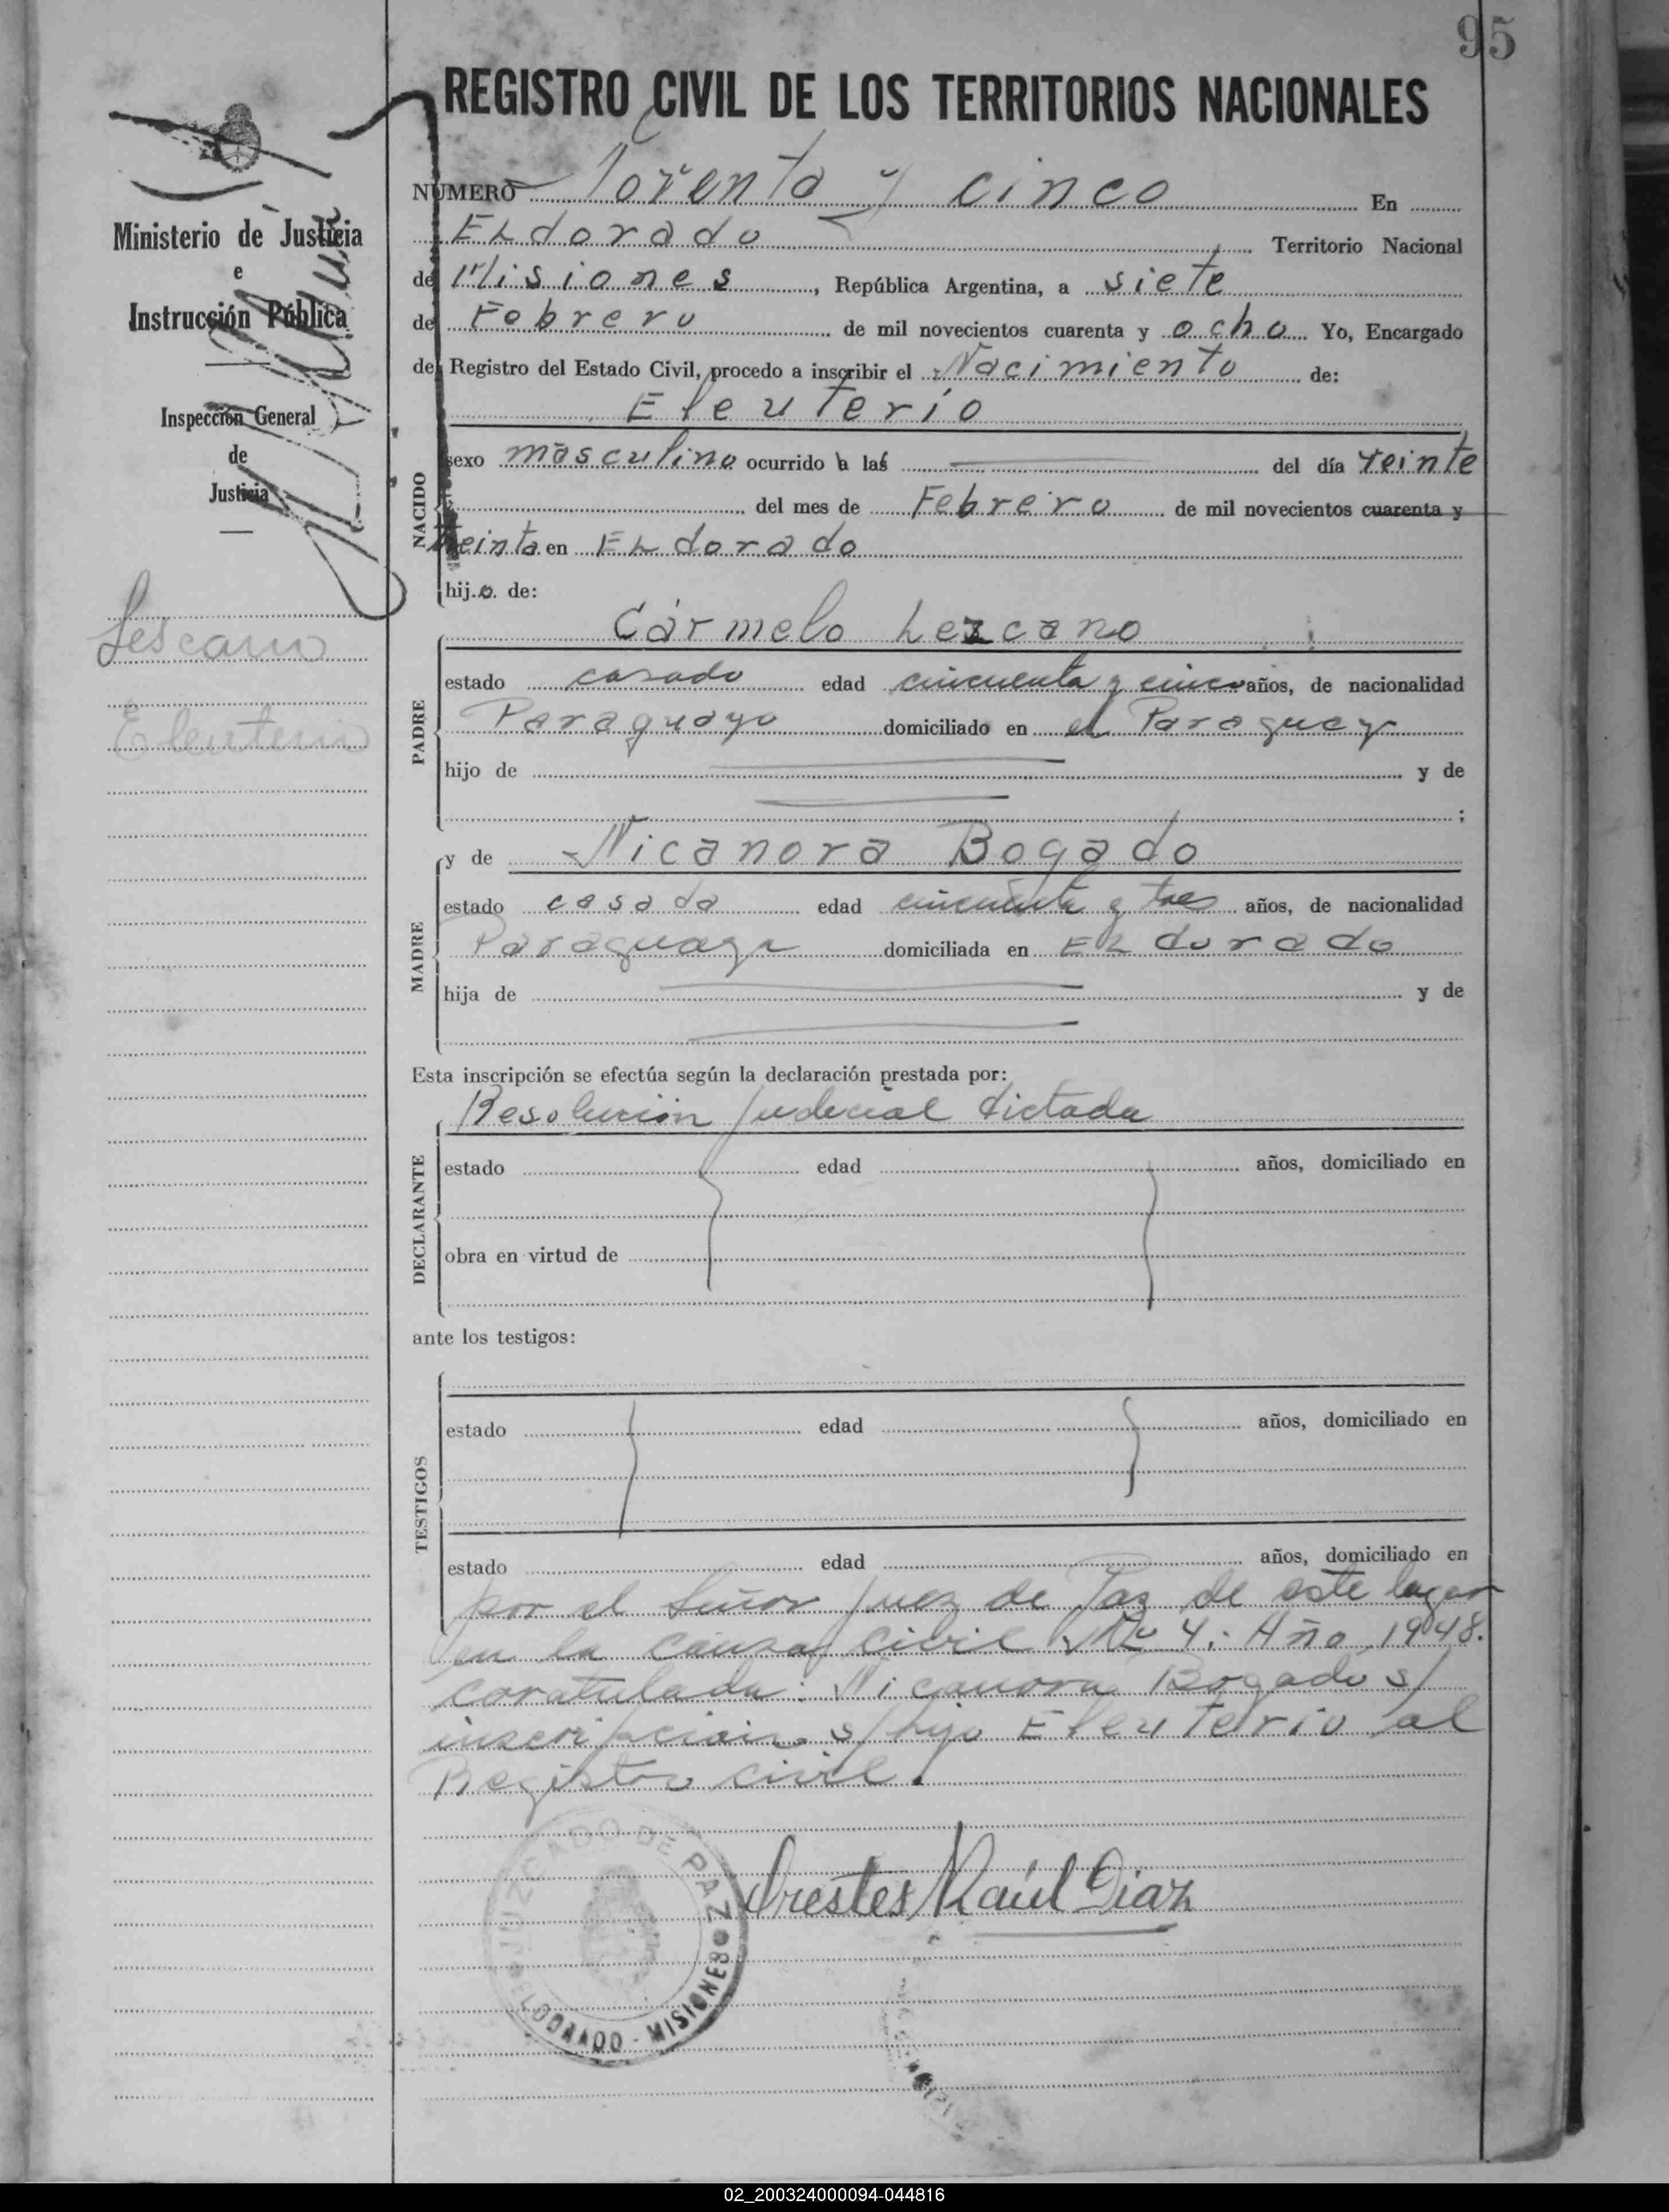 95
REGISTRO CIVIL DE LOS TERRITORIOS NACIONALES
Ministerio de Justicia
e
Instrucción Pública
Inspección General
de
Justicia
Lescano
Eleuterio
NÚMERO Noventa y cinco En
Eldorado Territorio Nacional
de Misiones, República Argentina, a siete
de Febrero de mil novecientos cuarenta y ocho Yo, Encargado
del Registro del Estado Civil, procedo a inscribir el Nacimiento de:
Eleuterio
NACIDO
sexo masculino ocurrido a las del día veinte
del mes de Febrero de mil novecientos cuarenta y
treinta en Eldorado
hijo de:
Cármelo Lezcano
PADRE
estado casado edad cincuenta y cinco años, de nacionalidad
Paraguayo domiciliado en el Paraguay
hijo de y de
;
y de Nicanora Bogado
MADRE
estado casada edad cincuenta y tres años, de nacionalidad
Paraguaya domiciliada en Eldorado
hija de y de
Esta inscripción se efectúa según la declaración prestada por:
Resolución judicial dictada
DECLARANTE
estado edad años, domiciliado en
obra en virtud de
ante los testigos:
TESTIGOS
estado edad años, domiciliado en
estado edad años, domiciliado en
por el Señor Juez de Paz de este lugar
en la causa civil Nº 4.- Año 1948.
caratulada: Nicanora Bogado s/
inscripción s/hijo Eleuterio al
Registro civil.
JUZGADO DE PAZ
ELDORADO - MISIONES
Orestes Raúl Diaz
02_200324000094-044816